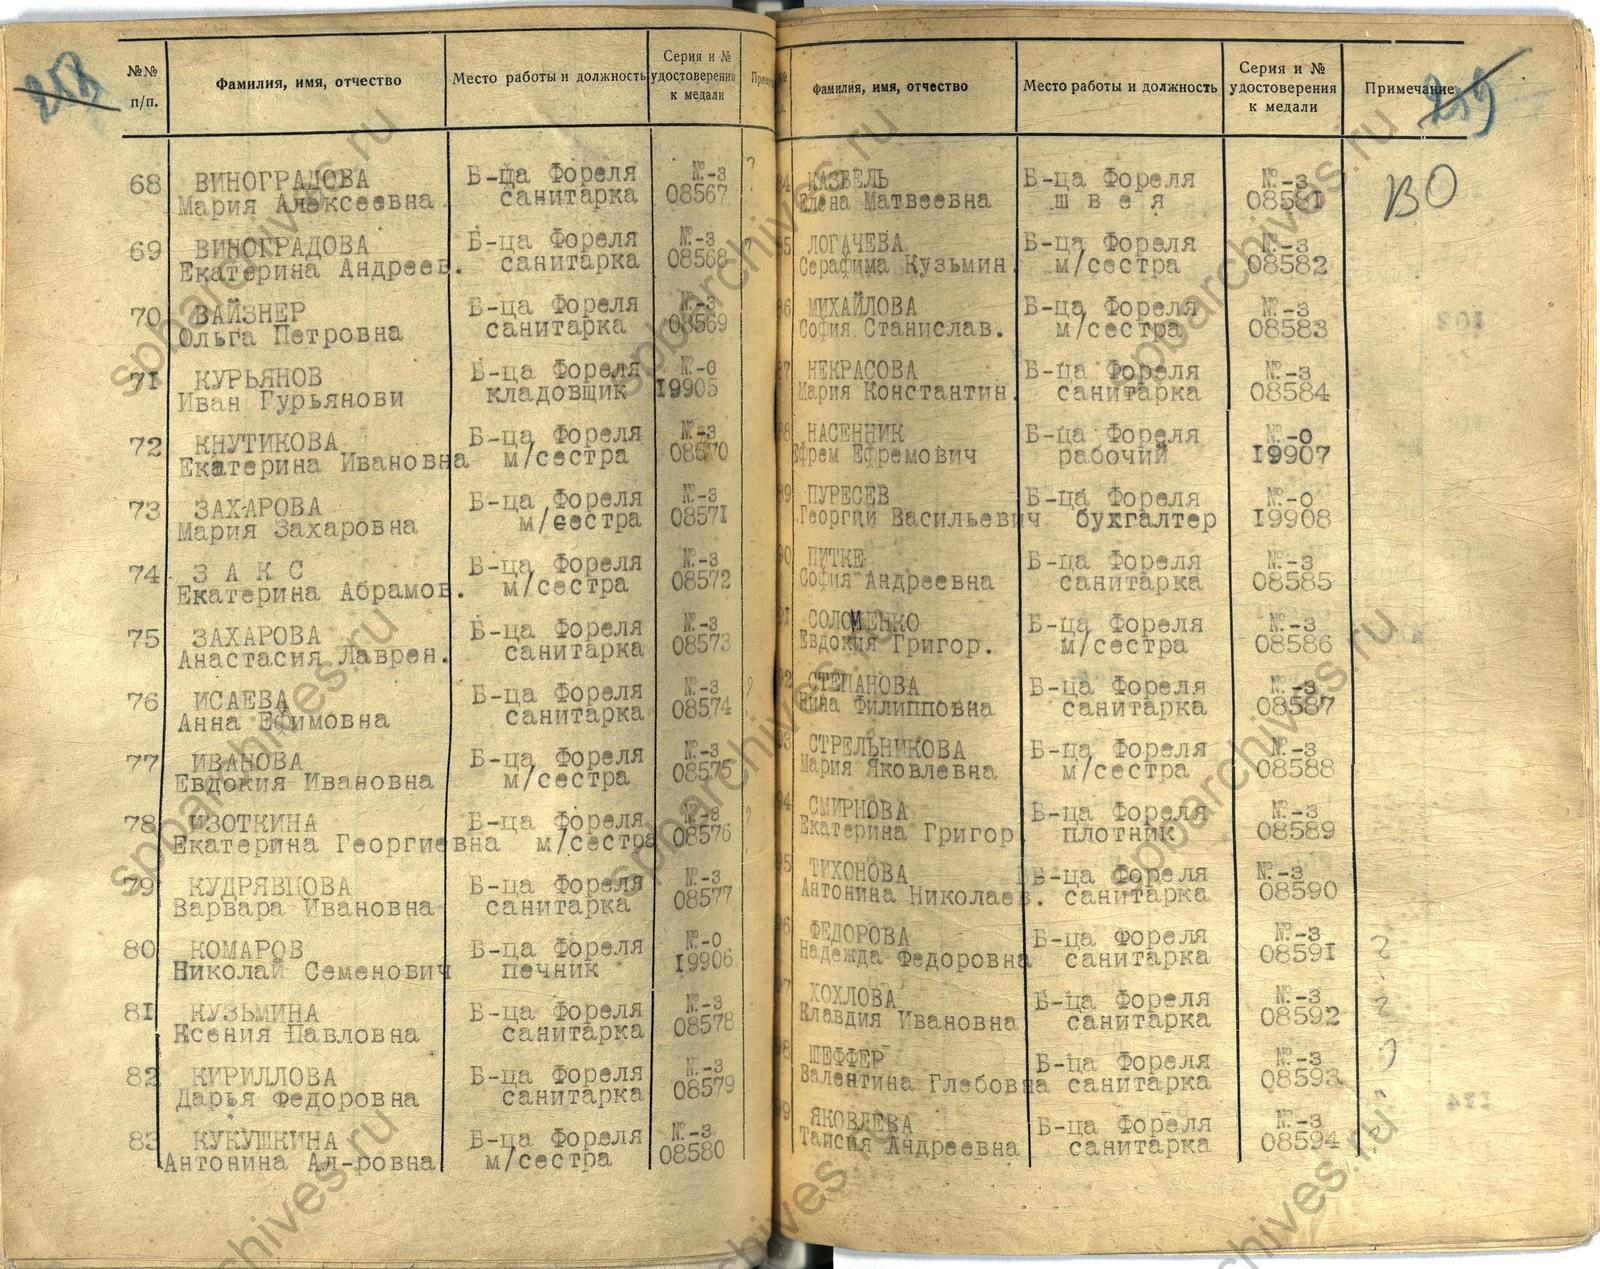 258
№№ п/п.
Фамилия, имя, отчество
Место работы и должность
Серия и № удостоверения к медали
68 ВИНОГРАДОВА Б-ца Фореля №-з
Мария Алексеевна санитарка 08567 ?
69 ВИНОГРАДОВА Б-ца Фореля №-з
Екатерина Андреев. санитарка 08568 ?
70 ВАЙЗНЕР Б-ца Фореля №-з
Ольга Петровна санитарка 08569
71 КУРЬЯНОВ Б-ца Фореля №-о
Иван Гурьянови кладовщик 19905
72 КНУТИКОВА Б-ца Фореля №-з
Екатерина Ивановна м/сестра 08570
73 ЗАХАРОВА Б-ца Фореля №-з
Мария Захаровна м/сестра 08571
74 З А К С Б-ца Фореля №-з
Екатерина Абрамов. м/сестра 08572
75 ЗАХАРОВА Б-ца Фореля №-з
Анастасия Лаврен. санитарка 08573
76 ИСАЕВА Б-ца Фореля №-з ?
Анна Ефимовна санитарка 08574
77 ИВАНОВА Б-ца Фореля №-з
Евдокия Ивановна м/сестра 08575
78 ИЗОТКИНА Б-ца Фореля №-з ?
Екатерина Георгиевна м/сестра 08576
79 КУДРЯВЦОВА Б-ца Фореля №-з
Варвара Ивановна санитарка 08577
80 КОМАРОВ Б-ца Фореля №-о
Николай Семенович печник 19906
81 КУЗЬМИНА Б-ца Фореля №-з
Ксения Павловна санитарка 08578
82 КИРИЛЛОВА Б-ца Фореля №-з
Дарья Федоровна санитарка 08579
83 КУКУШКИНА Б-ца Фореля №-з
Антонина Ал-ровна м/сестра 08580
259
Фамилия, имя, отчество
Место работы и должность
Серия и № удостоверения к медали
Примечание
4 КАЗБЕЛЬ Б-ца Фореля №-з ВО
Елена Матвеевна ш в е я 08581
5 ЛОГАЧЕВА Б-ца Фореля №-з
Серафима Кузьмин. м/сестра 08582
6 МИХАЙЛОВА Б-ца Фореля №-з
София Станислав. м/сестра 08583
7 НЕКРАСОВА Б-ца Фореля №-з
Мария Константин. санитарка 08584
8 НАСЕННИК Б-ца Фореля №-о
Ефрем Ефремович рабочий 19907
9 ПУРЕСЕВ Б-ца Фореля №-о
Георгий Васильевич бухгалтер 19908
0 ПУТКЕ Б-ца Фореля №-з
София Андреевна санитарка 08585
1 СОЛОМЕНКО Б-ца Фореля №-з
Евдокия Григор. м/сестра 08586
2 СТЕПАНОВА Б-ца Фореля №-з
Нина Филипповна санитарка 08587
3 СТРЕЛЬНИКОВА Б-ца Фореля №-з
Мария Яковлевна м/сестра 08588
4 СМИРНОВА Б-ца Фореля №-з
Екатерина Григор. плотник 08589
5 ТИХОНОВА Б-ца Фореля №-з
Антонина Николаев. санитарка 08590
6 ФЕДОРОВА Б-ца Фореля №-з ?
Надежда Федоровна санитарка 08591
7 ХОХЛОВА Б-ца Фореля №-з ?
Клавдия Ивановна санитарка 08592
8 ШЕФФЕР Б-ца Фореля №-з ?
Валентина Глебовна санитарка 08593
9 ЯКОВЛЕВА Б-ца Фореля №-з ?
Таисия Андреевна санитарка 08594
spbarchives.ru